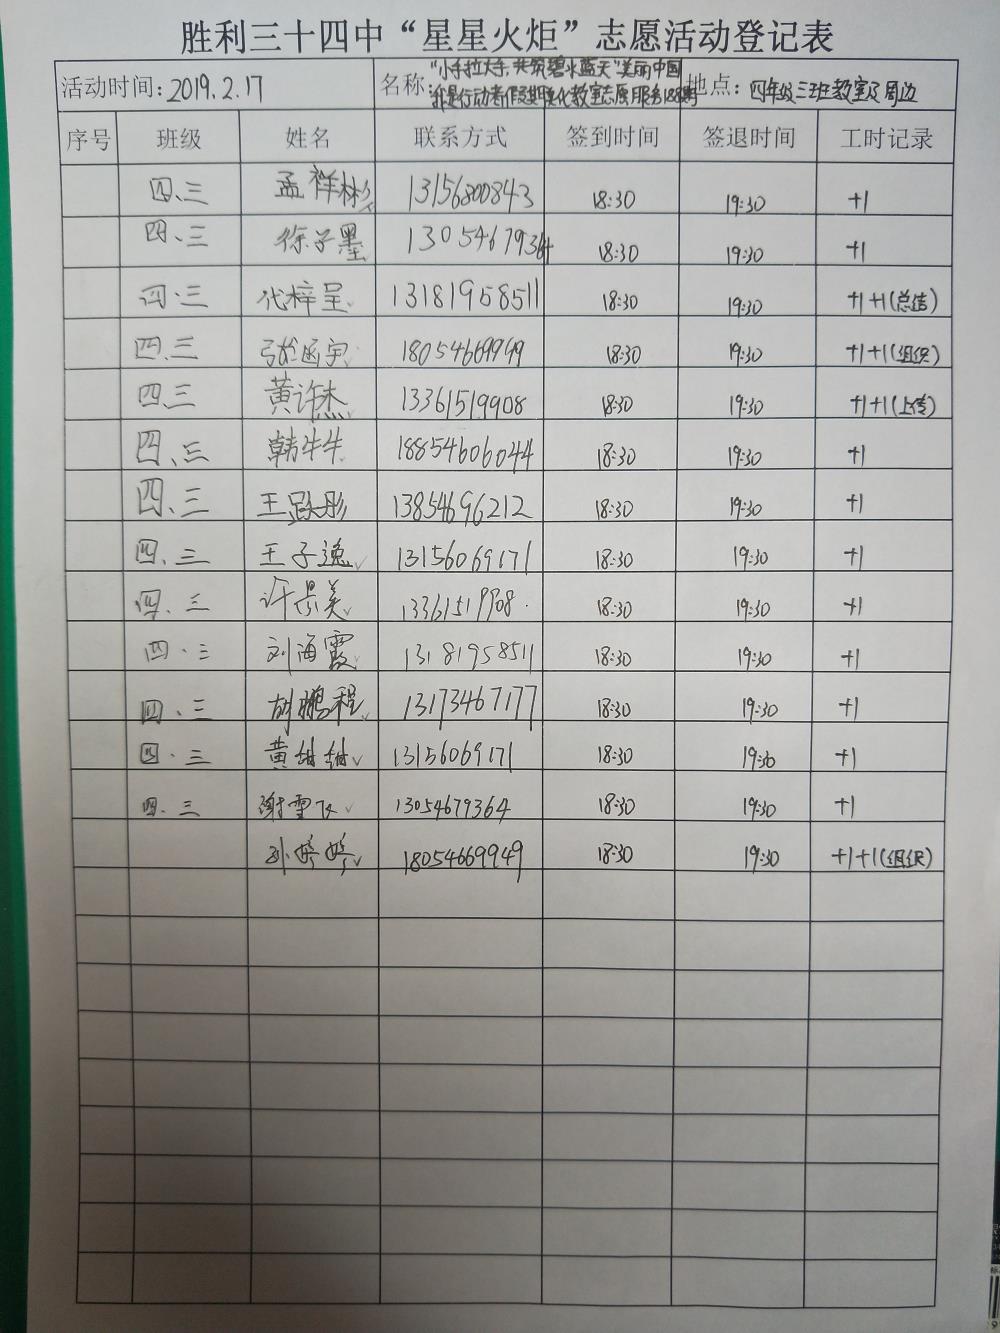 胜利三十四中“星星火炬”志愿活动登记表
活动时间:2019.2.17 名称:“小手拉大手,共筑碧水蓝天”美丽中国 地点:四年级三班教室及周边
我是行动者假期美化教室志愿服务188期
序号 班级 姓名 联系方式 签到时间 签退时间 工时记录
四、三 孟祥彬 13156800843 18:30 19:30 +1
四、三 徐子墨 13054679364 18:30 19:30 +1
四.三 代梓呈 13181958511 18:30 19:30 +1+1(总结)
四.三 张函宇 18054669999 18:30 19:30 +1+1(组织)
四.三 黄许杰 13361519908 18:30 19:30 +1+1(上传)
四、三 韩牛牛 18854606044 18:30 19:30 +1
四、三 王跃彤 13854696212 18:30 19:30 +1
四、三 王子逸 13156069171 18:30 19:30 +1
四.三 许景美 13361519908 18:30 19:30 +1
四.三 刘海霞 13181958511 18:30 19:30 +1
四、三 胡鹏程 13173467177 18:30 19:30 +1
四.三 黄甜甜 13156069171 18:30 19:30 +1
四.三 谢雪飞 13054679364 18:30 19:30 +1
孙婷婷 18054669949 18:30 19:30 +1+1(组织)